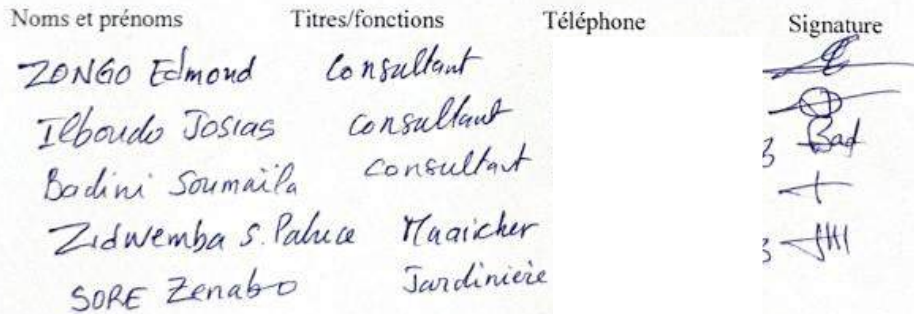 Noms et prénoms Titres/fonctions Téléphone Signature
ZONGO Edmond Consultant
Ilboudo Josias consultant
Badini Soumaïla consultant 3 Bad
Zidwemba S. Patrice Maaicher
SORE Zenabo Jardinière 3